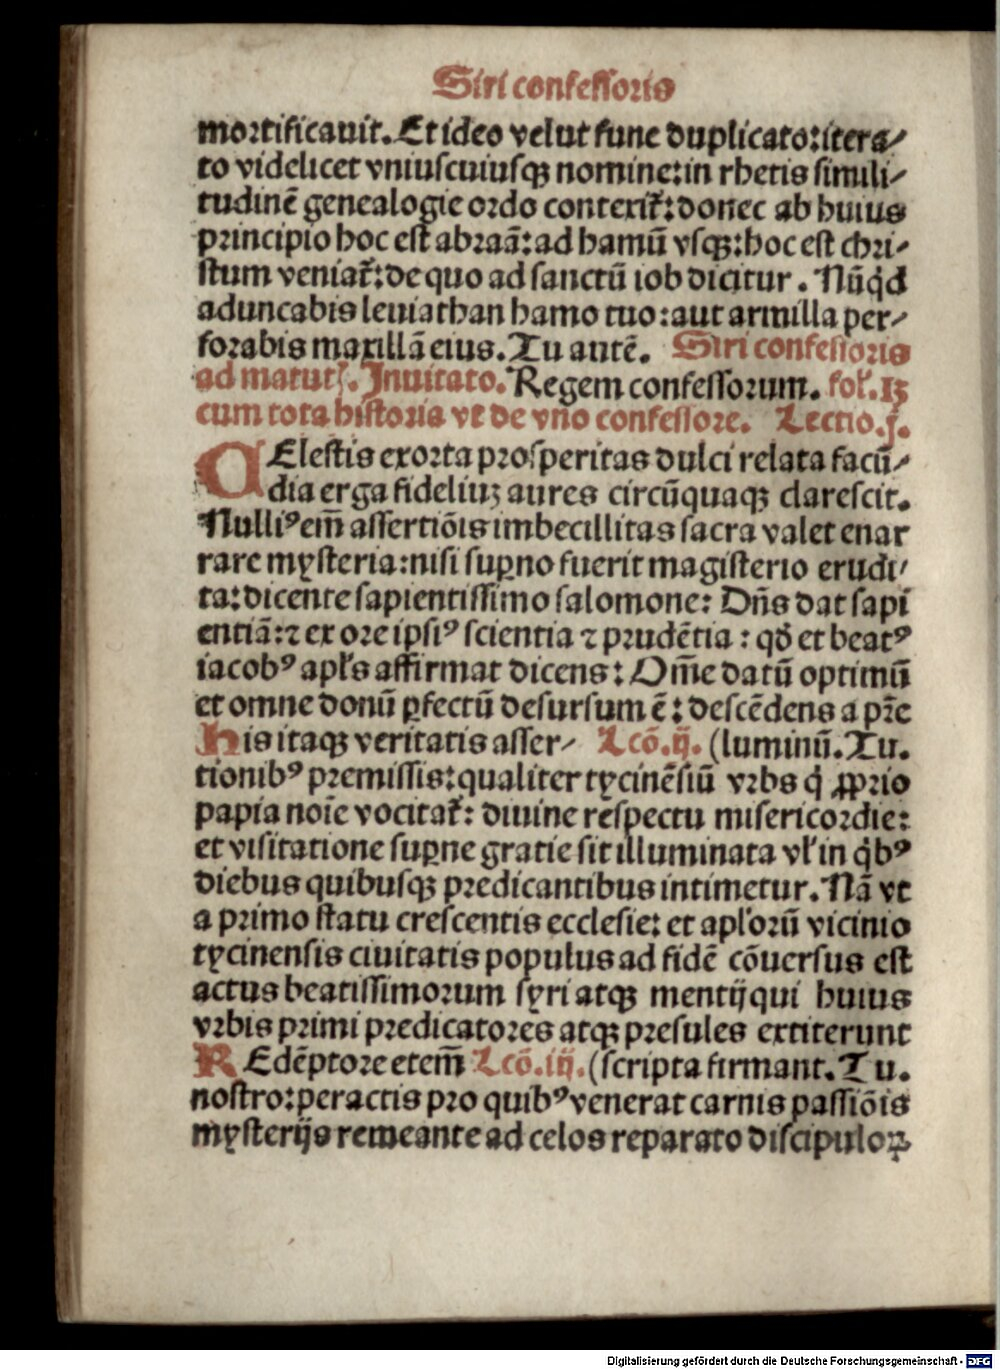 Siri confessoris
mortificauit. Et ideo velut fune duplicato: itera⸗
to videlicet vniuscuiusqꝫ nomine: in rhetis simili⸗
tudinē genealogie ordo contexit᷑: donec ab huius
principio hoc est abraā: ad hamū vsqꝫ: hoc est chri⸗
stum veniat᷑: de quo ad sanctū iob dicitur. Nūqd
aduncabis leuiathan hamo tuo: aut armilla per⸗
forabis maxillā eius. Tu autē. Siri confessoris
ad matut᷑. Inuitato. Regem confessorum. fol.
cum tota historia vt de vno confessore. Lectio .j.
CElestis exorta prosperitas dulci relata facū⸗
dia erga fideliuꝫ aures circūquaqꝫ clarescit.
Nulliꝰ em̄ assertiōis imbecillitas sacra valet enar
rare mysteria: nisi suꝑno fuerit magisterio erudi⸗
ta: dicente sapientissimo salomone: Dn̄s dat sapi
entiā: ⁊ ex ore ipsiꝰ scientia ⁊ prudētia: qđ et beatꝰ
iacobꝰ apl's affirmat dicens: Om̄e datū optimū
et omne donū ꝑfectū desursum ē: descēdens a pr̄e
His itaqꝫ veritatis asser⸗ Lcō .ij. (luminū. Tu.
tionibꝰ premissis: qualiter tycinēsiū vrbs q̄ ꝓprio
papia noīe vocitat᷑: diuine respectu misericordie:
et visitatione suꝑne gratie sit illuminata vl' in q̇bꝰ
diebus quibusqꝫ predicantibus intimetur. Nā vt
a primo statu crescentis ecclesie: et apl'orū vicinio
tycinensis ciuitatis populus ad fidē cōuersus est
actus beatissimorum syri atqꝫ mentij qui huius
vrbis primi predicatores atqꝫ presules extiterunt
REdēptore etem̄ Lcō .iij. (scripta firmant. Tu.
nostro: peractis pro quibꝰ venerat carnis passiōis
mysterijs remeante ad celos reparato discipuloꝝ
Digitalisierung gefördert durch die Deutsche Forschungsgemeinschaft - DFG